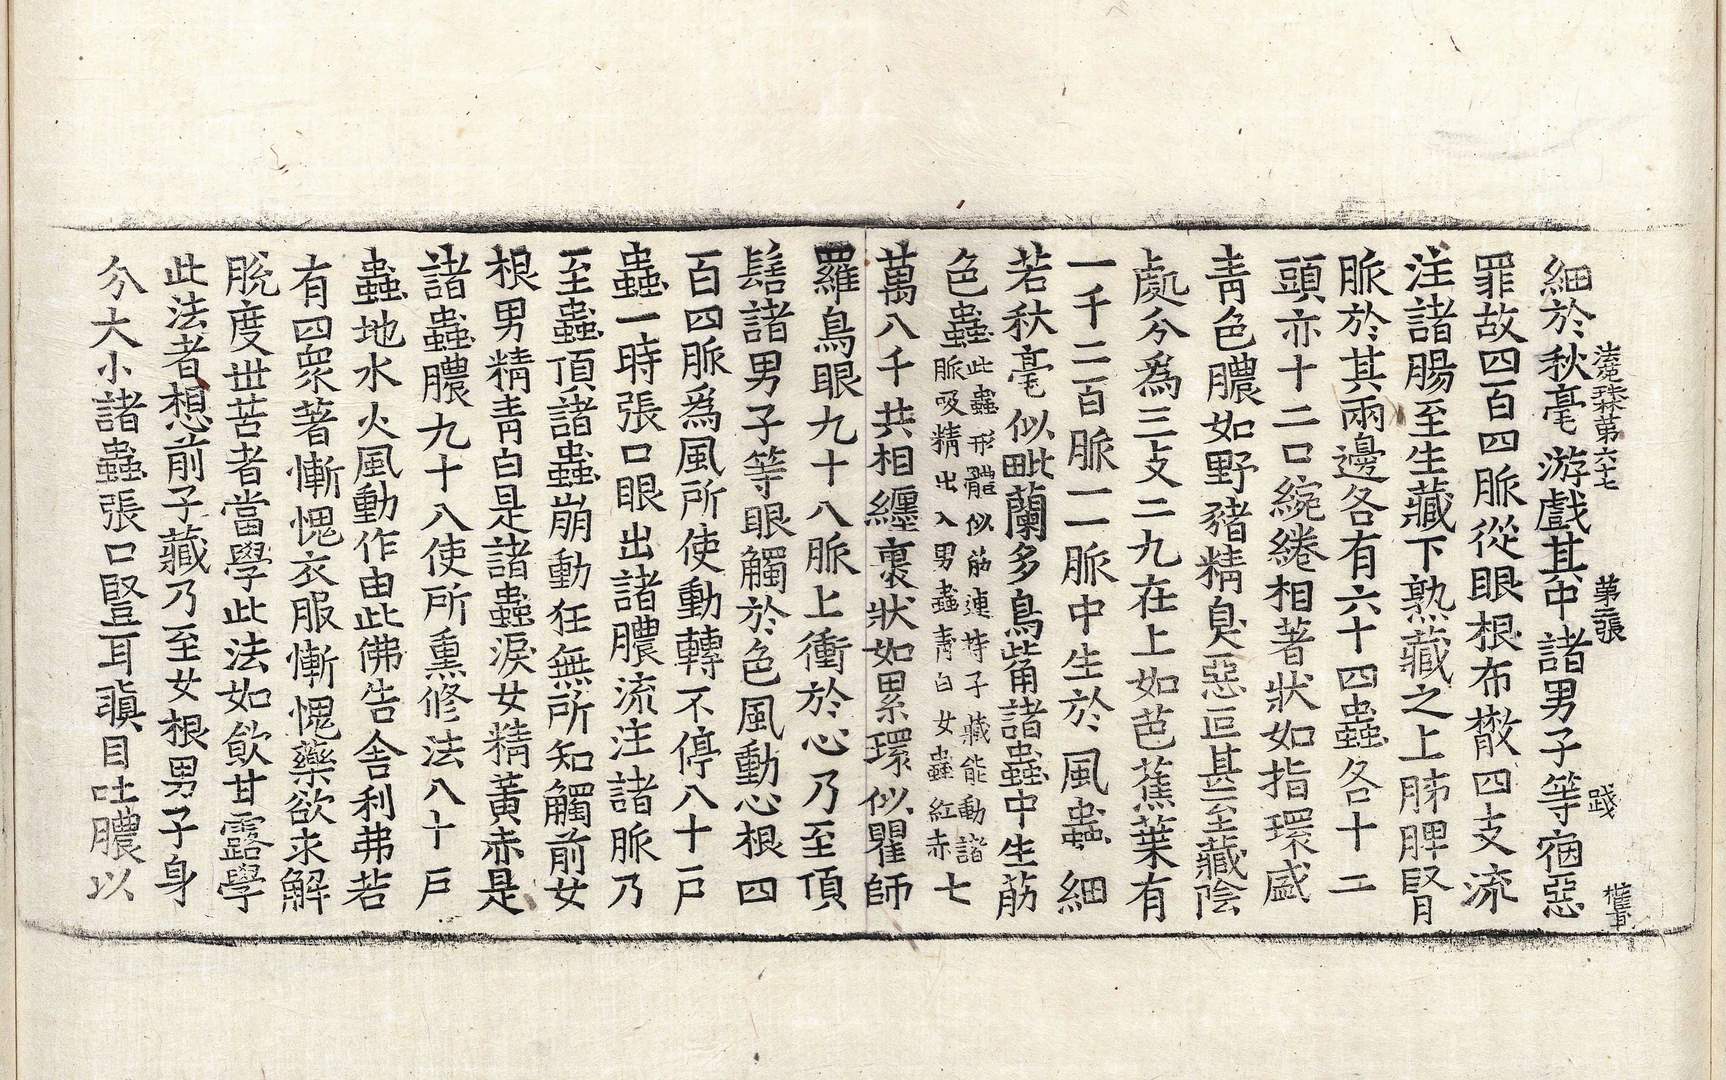 法苑珠林第六七 第二張 踐
細於秋毫游戲其中諸男子等宿惡
罪故四百四脈從眼根布散四支流
注諸腸至生藏下熟藏之上肺脾腎
脈於其兩邊各有六十四蟲各十二
頭亦十二口綩綣相著狀如指環盛
青色膿如野豬精臭惡叵甚至藏陰
處分為三支二九在上如芭蕉葉有
一千二百脈一一脈中生於風蟲細
若秋毫似毗蘭多鳥觜諸蟲中生筋
色蟲此蟲形體似筋連持子藏能動諸脈吸精出入男蟲青白女蟲紅赤七
萬八千共相纏裹狀如累環似瞿師
羅鳥眼九十八脈上衝於心乃至頂
髻諸男子等眼觸於色風動心根四
百四脈為風所使動轉不停八十戶
蟲一時張口眼出諸膿流注諸脈乃
至蟲頂諸蟲崩動狂無所知觸前女
根男精青白是諸蟲淚女精黃赤是
諸蟲膿九十八使所熏修法八十戶
蟲地水火風動作由此佛告舍利弗若
有四眾著慚愧衣服慚愧藥欲求解
脫度世苦者當學此法如飲甘露學
此法者想前子藏乃至女根男子身
分大小諸蟲張口豎耳瞋目吐膿以